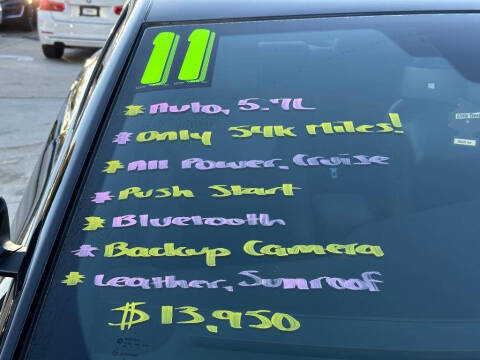 11
* Auto, 5.7L
* Only 54k Miles!
* All Power, Cruise
* Push Start
* Bluetooth
* Backup Camera
* Leather, Sunroof
$13,950